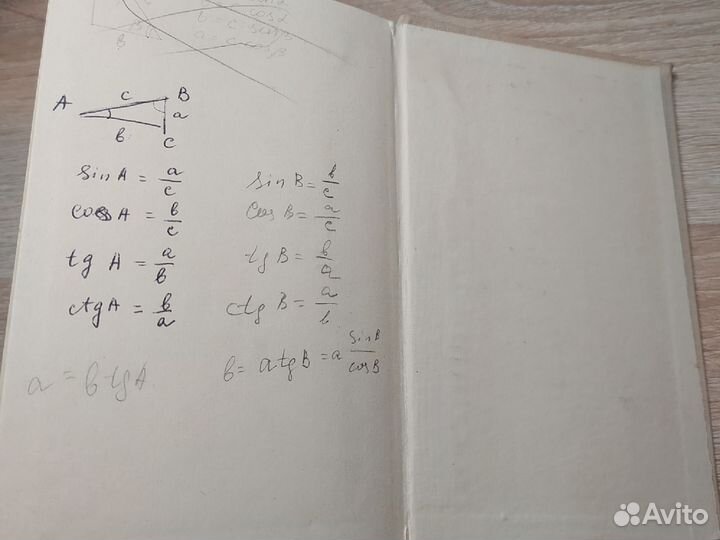 b = c sin β
a = c cos β
A c B
a
b C
sin A = a/c sin B = b/c
cos A = b/c cos B = a/c
tg A = a/b tg B = b/a
ctg A = b/a ctg B = a/b
a = b tg A b = a tg B = a sin B/cos B
Avito